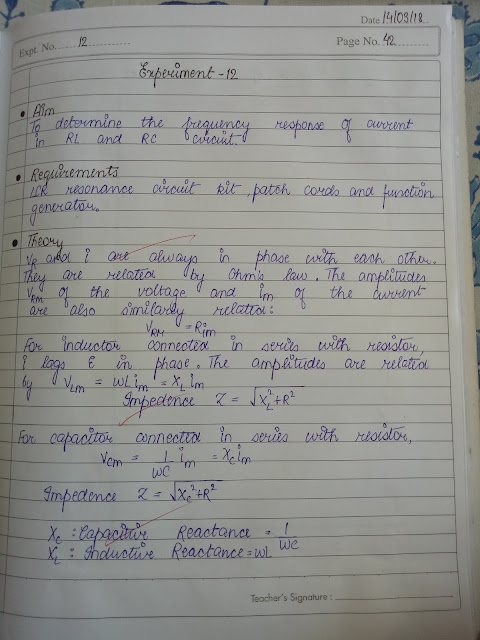 Date 14/03/18
Expt. No. 12
Page No. 42
Experiment - 12
• Aim
To determine the frequency response of current
in RL and RC circuit.
• Requirements
LCR resonance circuit kit, patch cords and function
generator.
• Theory
VR and i are always in phase with each other.
They are related by Ohm's law. The amplitudes
VRM of the voltage and im of the current
are also similarly related:
VRM = Rim
For inductor connected in series with resistor,
i lags E in phase. The amplitudes are related
by VLm = ωL im = XL im
Impedence Z = √XL²+R²
For capacitor connected in series with resistor,
Vcm = 1/ωC im = Xc im
Impedence Z = √Xc²+R²
Xc : Capacitive Reactance = 1/ωC
XL : Inductive Reactance = ωL
Teacher's Signature :